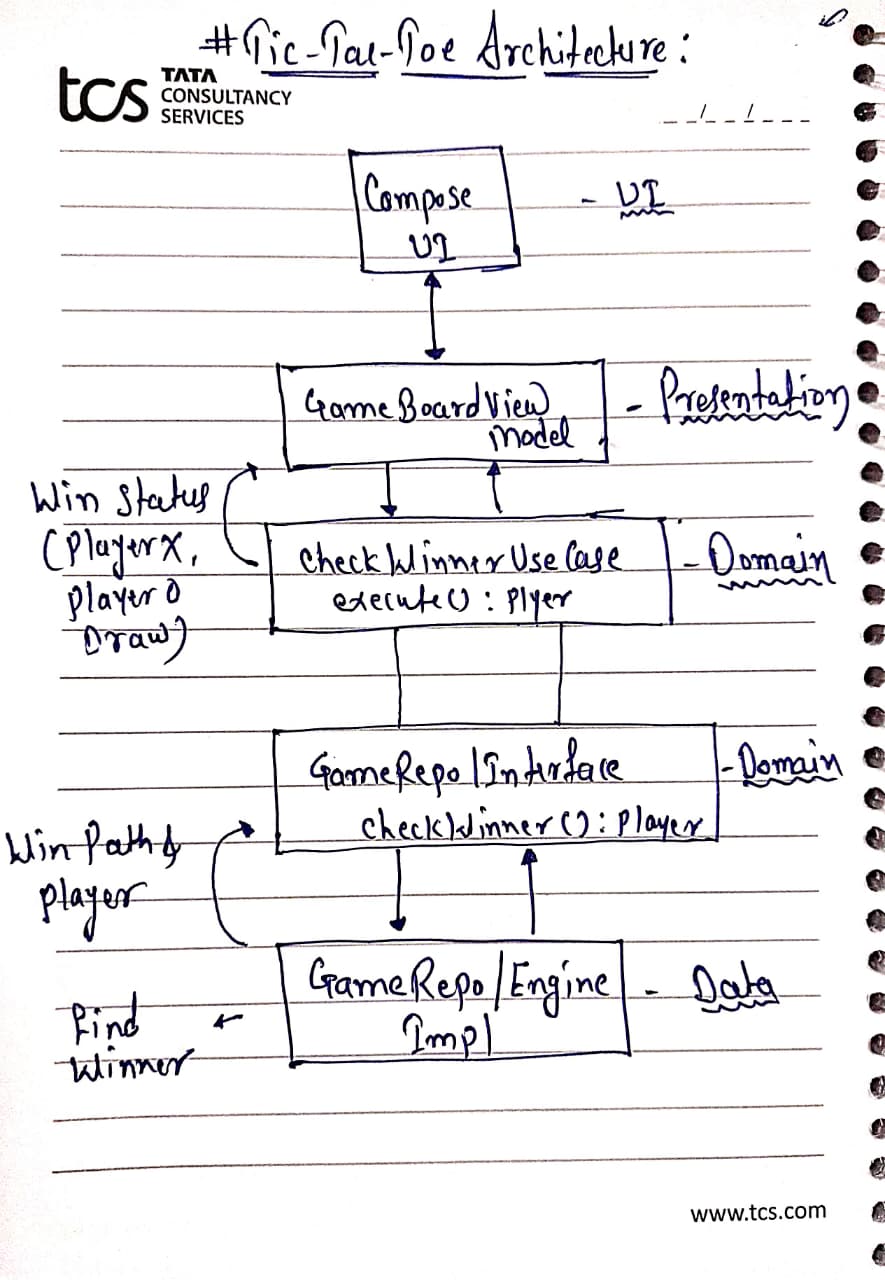 #Tic-Tac-Toe Architecture:
tcs TATA
CONSULTANCY
SERVICES
Compose
UI
- UI
GameBoardView
Model
- Presentation
Win Status
(PlayerX,
Player O
Draw)
CheckWinnerUseCase
execute() : Plyer
- Domain
GameRepo/Interface
checkWinner() : Player
- Domain
Win Path &
Player
GameRepo/Engine
Impl
- Data
Find
Winner
www.tcs.com